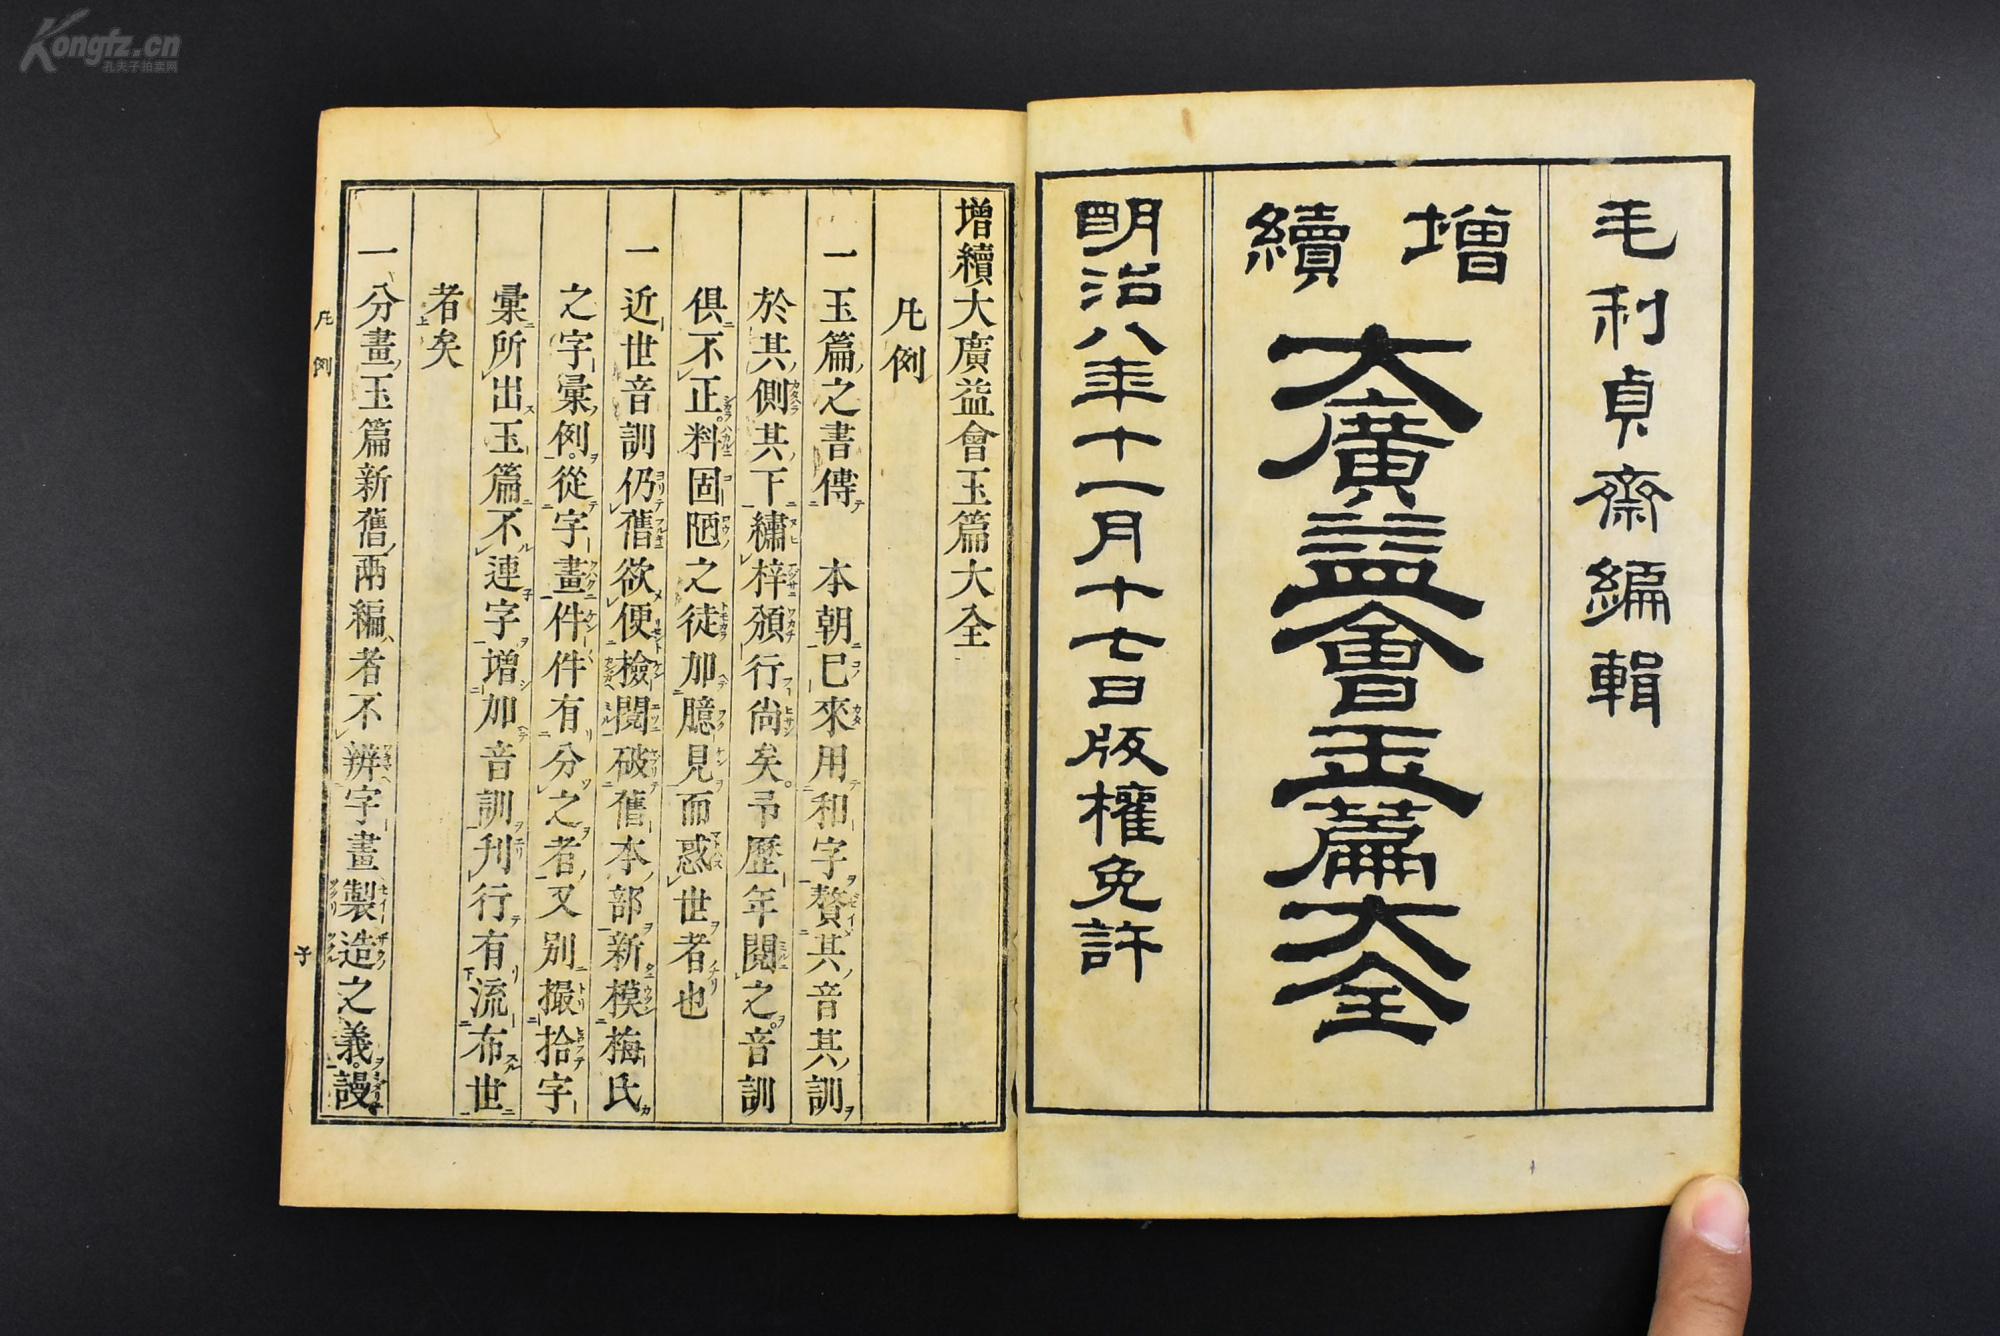 毛利貞齋編輯
增續
大廣益會玉篇大全
明治八年十一月十七日版權免許
增續大廣益會玉篇大全
凡例
一玉篇之書傳 本朝已來用和字贅其音其訓
於其側其下繡梓頒行尚矣。予歷年閱之。音訓
俱不正。料固陋之徒加臆見而惑世者也
一近世音訓仍舊欲便檢閱破舊本部新模梅氏
之字彙例。從字畫件件有分之者又別撮拾字
彙所出玉篇不連字增加音訓刊行有流布世
者矣
一分畫玉篇新舊兩編者不辨字畫製造之義。謾
凡例
子
Kongfz.cn
孔夫子拍卖网